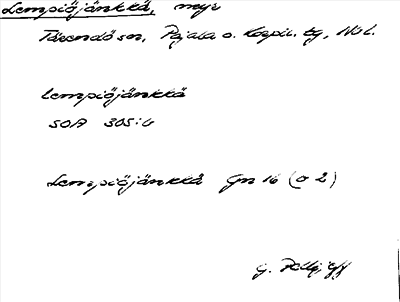 Lempiöjänkkä, myr
Tärendö sn, Pajala o. Korpil. tg, Nbl.
Lempiöjänkkä
SOA 305:6
Lempiöjänkkä Gn 16 (o 2)
G. Pellijeff